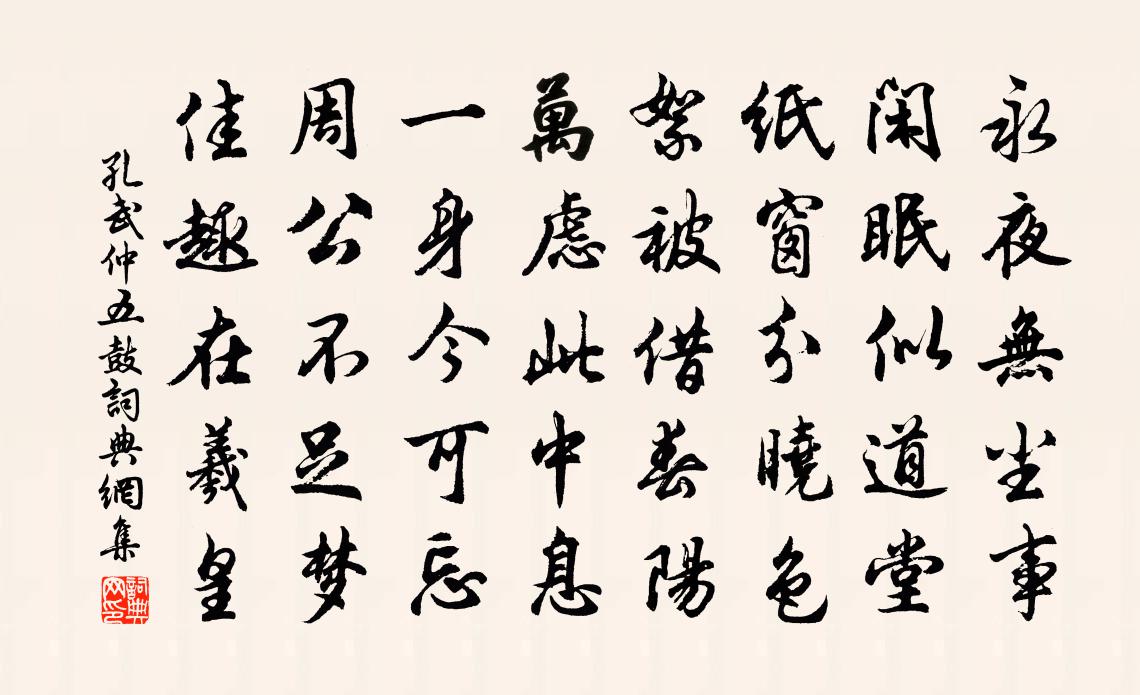 永夜無尘事
閑眠似道堂
紙窗分曉色
絮被借春陽
萬慮此中息
一身今可忘
周公不足梦
佳趣在羲皇
孔武仲五鼓詞典網集
詞典网印